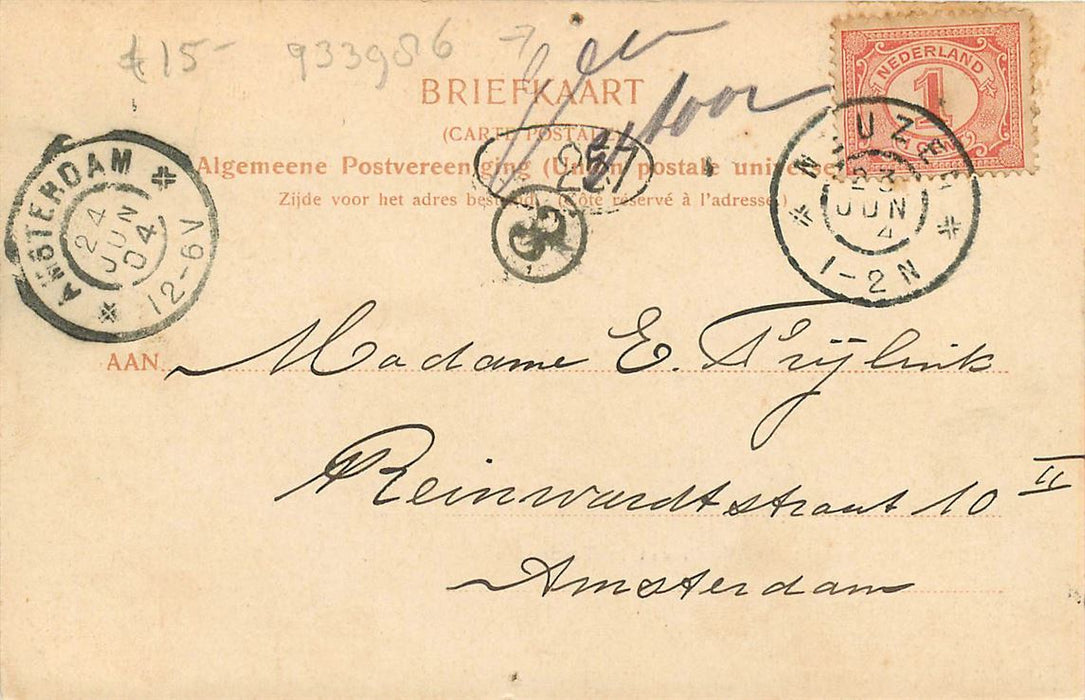 £15- 933986 →
NEDERLAND
1
CENT
BRIEFKAART
(CARTE POSTALE)
Algemeene Postvereeniging (Union postale universelle)
Zijde voor het adres bestemd. (Côté réservé à l'adresse.)
257
AMSTERDAM
24
JUN
04
12-6V
N. BUZ
23
JUN
4
1-2N
AAN Madame E. Frijlink
Reinwardtstraat 10 II
Amsterdam